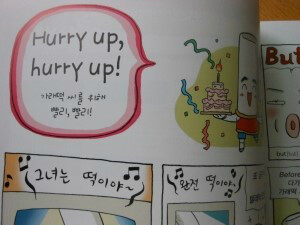 Hurry up,
hurry up!
가래떡 씨를 위해
빨리, 빨리!
But
그녀는 떡이야~
완전 떡이야~
Before